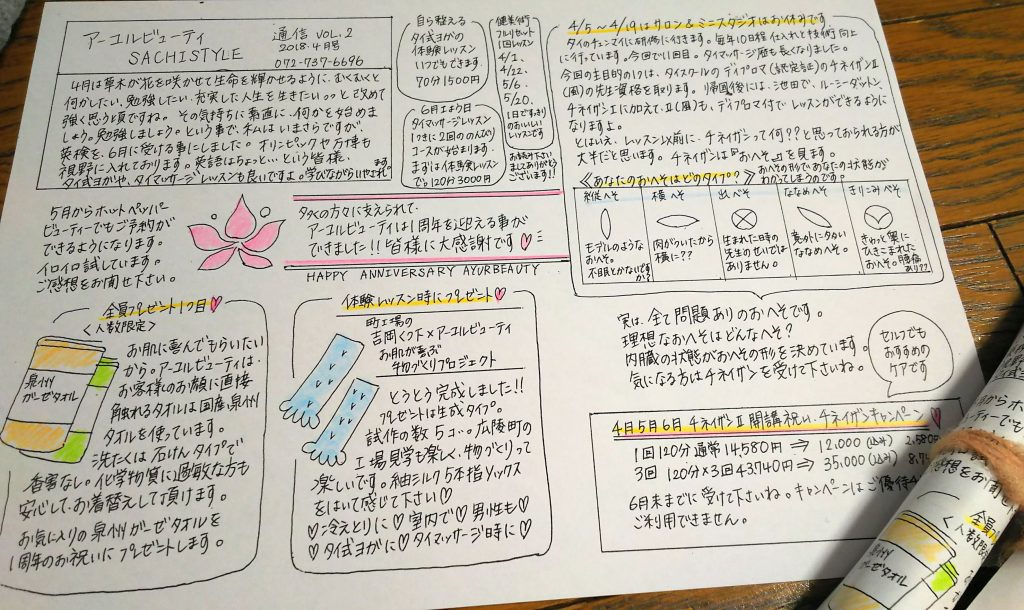 アーユルビューティ
SACHISTYLE
通信 VOL.2
2018.4月号
072-737-6696
4月は草木が花を咲かせて生命を輝かせるように、むくむくと
何かしたい、勉強したい、充実した人生を生きたいっっと改めて
強く思う頃ですね。その気持ちに素直に、何かを始めま
しょう。勉強しましょう。という事で、私ムはいまさらですが、
英検を、6月に受ける事にしました。オリンピックや万博も
視野に入れております。英語はちょっと…という皆様、
タイ式ヨガや、タイマッサージレッスンも良いですよ。学びながらいやされます
自ら整える
タイ式ヨガの
体験レッスン
いつでもできます。
70分1500円
6月1より日
タイマッサージレッスン
1つきに2回ののんびり
コースが始まります。
まずは体験レッスン
で。120分3000円
健美術
フルリセット
1回レッスン
4/1、
4/22、
5/6、
5/20、
1日ですっきり
のおいしい
レッスンです
お読み下さい
ましてありがとう
ございます!!
4/5～4/19はサロン&ミニスタジオはお休みです。
タイのチェンマイに研修に行きます。毎年10日程 仕入れと技術向上
に行っています。今回で11回目。タイマッサージ歴も長くなりました。
今回の主目的の1つは、タイスクールのディプロマ(認定証)のチネイザンII
(風)の先生資格を取ります。帰国後には、池田で、ルーシーダットン、
チネイザンIに加えて、II(風)も、ディプロマ付でレッスンができるように
なりますよ。
とはいえ、レッスン以前に、チネイザンって何??と思っておられる方が
大半だと思います。チネイザンは『おへそ』を見ます。
《あなたのおへそはどのタイプ?》
おへその形で、あなたの状態が
わかってしまうのです。
縦へそ
横へそ
出べそ
ななめへそ
きりこみへそ
モデルのような
おへそ。
不眠とかないですか?
肉がついたから
横に??
生まれた日の
先生のせいでは
ありません。
意外に多い
ななめへそ。
きゅっと奥に
ひきこまれた
おへそ。腰痛
あり??
5月からホットペッパー
ビューティーでもご予約が
できるようになります。
イロイロ試しています。
ご感想をお聞せ下さい。
多くの方々に支えられて、
アーユルビューティは1周年を迎える事が
できました!!皆様に大感謝です♡
HAPPY ANNIVERSARY AYURBEAUTY
実は、全て問題ありのおへそです。
理想なおへそはどんなへそ?
内臓の状態がおへその形を決めています。
気になる方はチネイザンを受けて下さいね。
セルフでも
おすすめの
ケアです
全員プレゼント1つ目♡
<人数限定>
泉州
ガーゼタオル
お肌に喜んでもらいたい
から。アーユルビューティは、
お客様のお顔に直接
触れるタオルは国産、泉州
タオルを使っています。
洗たくは石けんタイプで
香害なし。化学物質に過敏な方も
安心して、お着替えして頂けます。
お気に入りの泉州ガーゼタオルを
1周年のお祝いにプレゼントします。
体験レッスン時にプレゼント♡
町工場の
吉岡くつ下×アーユルビューティ
お肌が喜ぶ
物づくりプロジェクト
とうとう完成しました!!
プレゼントは生成タイプ。
試作の数5コ…。広陵町の
工場見学も楽しく、物づくりって
楽しいです。紬シルク5本指ソックス
をはいて感じて下さい♡
♡冷えとりに♡室内で♡男性も♡
♡タイ式ヨガに♡タイマッサージ時に♡
4月5月6月 チネイザンII 開講祝い、チネイザンキャンペーン♡
1回 120分 通常14,580円 ⇒ 12,000(込み)
3回 120分×3回 43,740円 ⇒ 35,000(込み)
6月末までに受けて下さいね。キャンペーンはご優待
ご利用できません。
泉州
ガーゼタオル